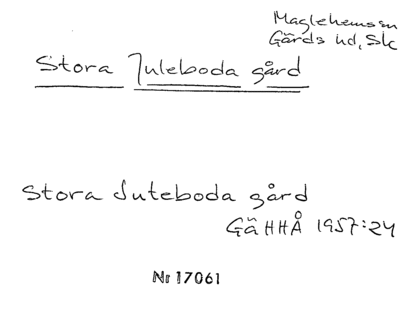 Maglehemssn
Gärds hd, Sk
Stora Juleboda gård
Stora Juteboda gård
GäHHÅ 1957:24
Nr 17061